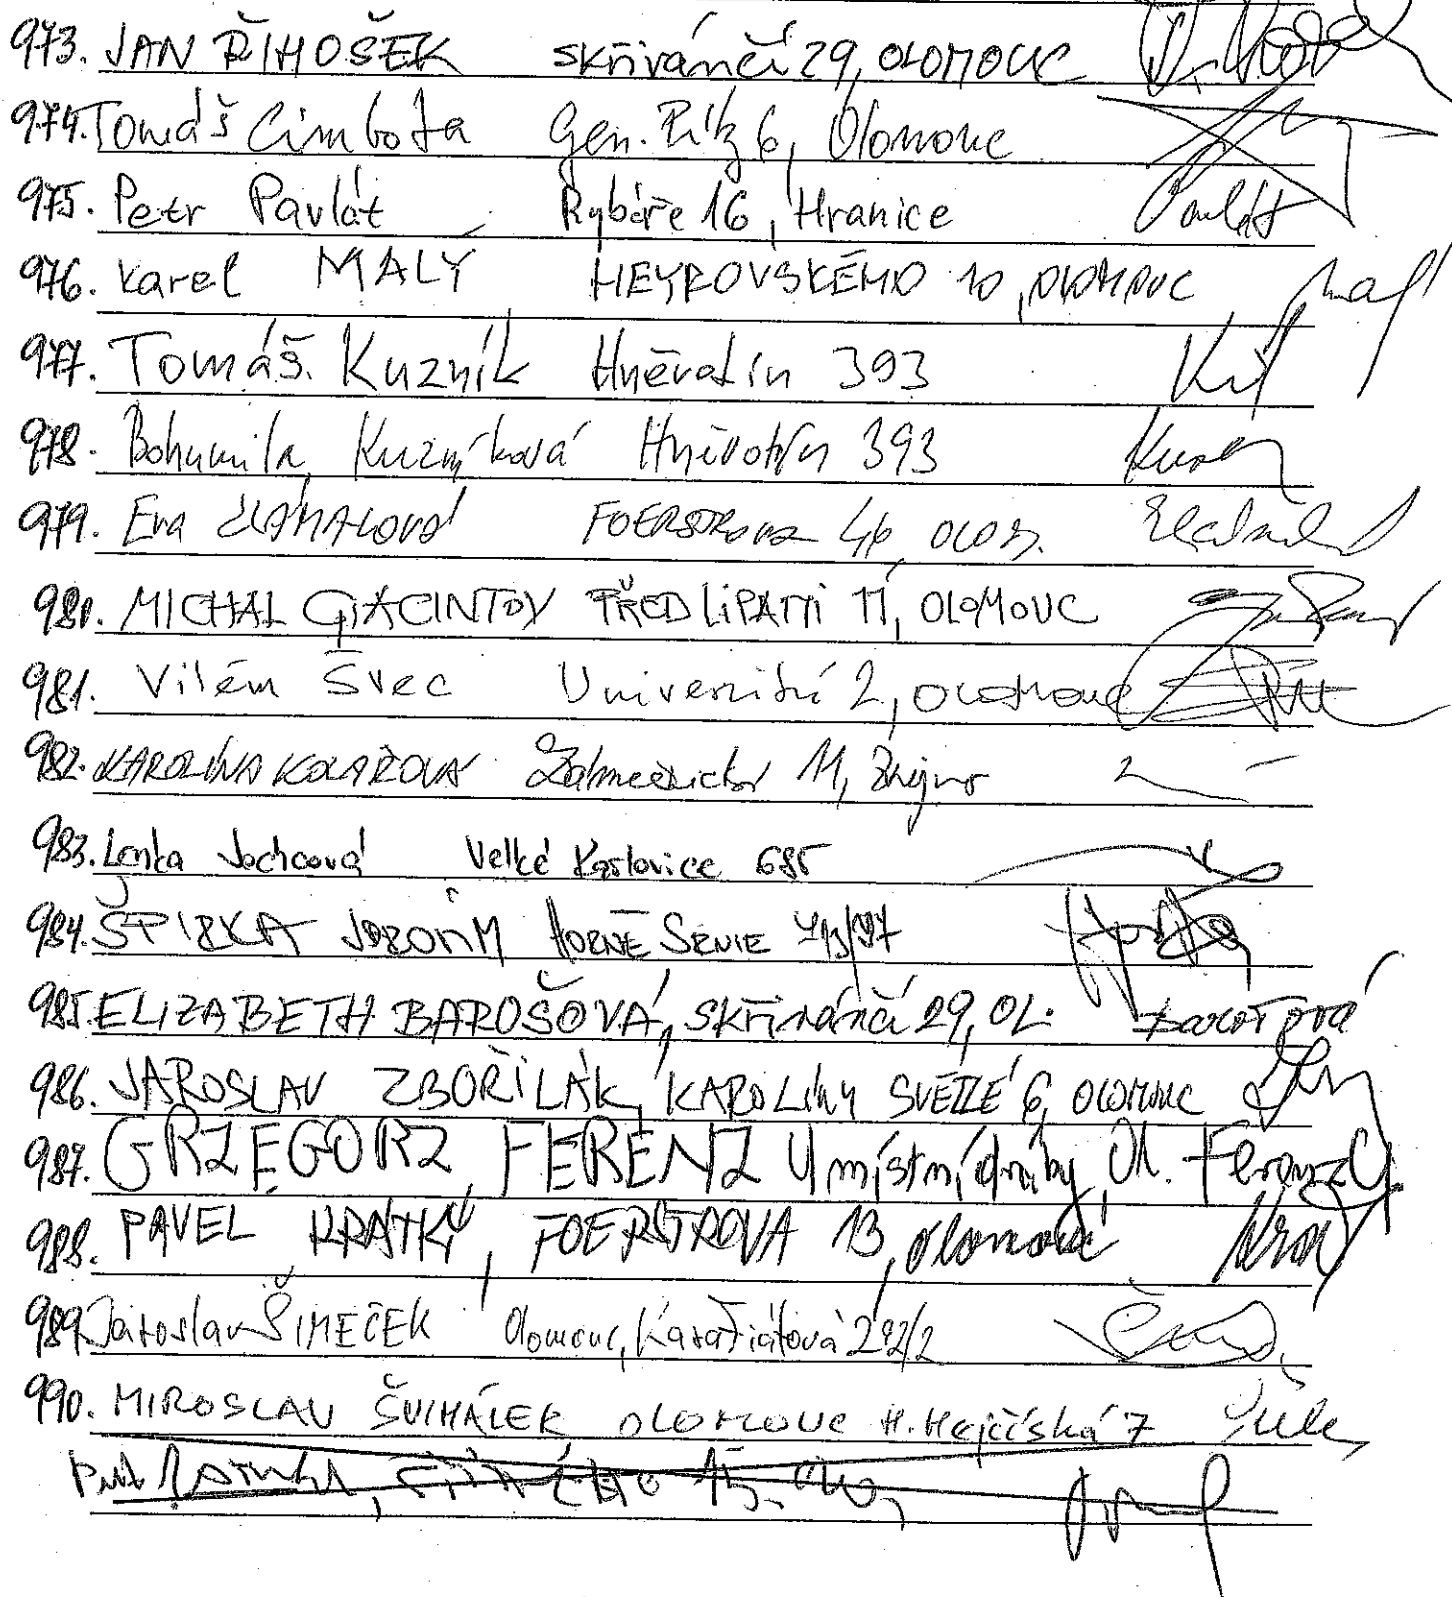 973. JAN ŘIHOŠEK skřivánčí 29, OLOMOUC
974. Tomáš Cimbota Gen. Píky 6, Olomouc
975. Petr Pavlát Rybáře 16, Hranice Pavlát
976. Karel MALÝ HEYROVSKÉHO 10, OLOMOUC
977. Tomáš Kuzník Hněvotín 393
978. Bohumila Kuzníková Hněvotín 393
979. Eva FOERSTROVA 46, OLOM.
980. MICHAL GIACINTOV PŘEDLIPAMI 11, OLOMOUC
981. Vilém Švec Univerzitní 2, OLOMOUC
982. KAROLÍNA KOLAŘOVÁ 11, Znojmo
983. Lenka Jochcová Velké Karlovice 685
984. ŠPIRKA HORNÉ SRNIE
985. ELIZABETH BAROŠOVÁ, skřivánčí 29, OL. Barošová
986. JAROSLAV ZBOŘILÁK, KAROLÍNY SVĚTLÉ 6, OLOMOUC
987. GRZEGORZ FERENZ U místní dráhy, Ol.
988. PAVEL KRÁTKÝ, FOERSTROVA 13, olomouc
989. Jaroslav ŠIMEČEK Olomouc, Karafiátová 292/2
990. MIROSLAV ŠVIHÁLEK OLOMOUC H. Hejčíská 7